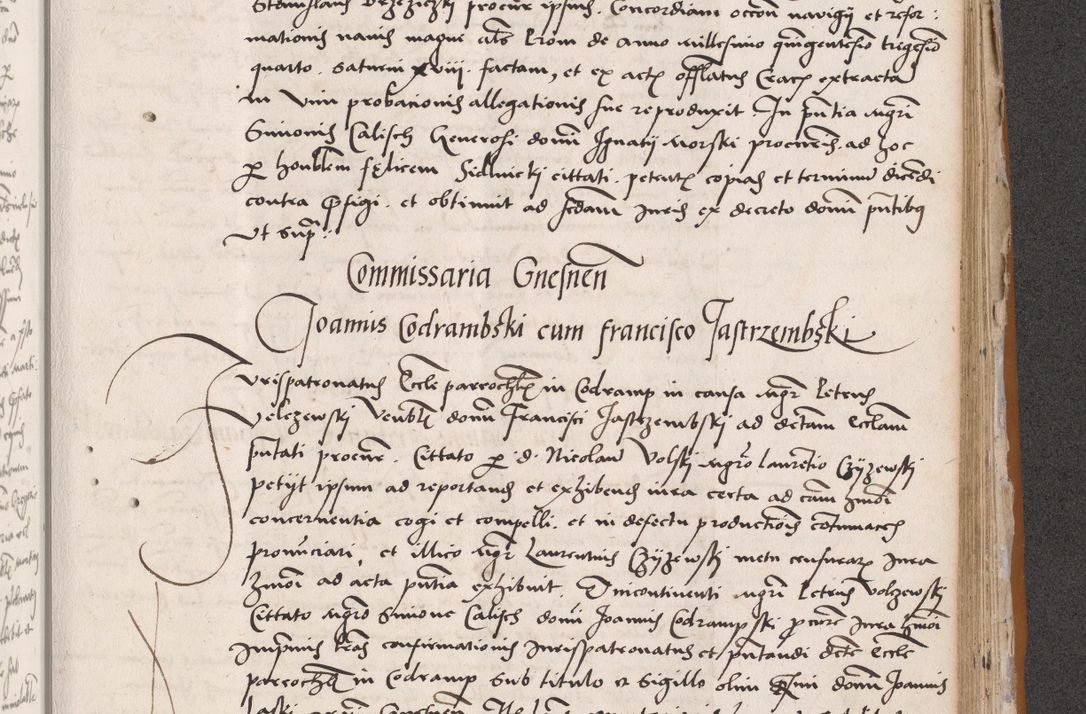 Stanislaus Brzeziczki procur ipsius. Concordiam occōn navigij et refor:
mationis navis magne ... de anno millesimo quingentesimo trigesio
quarto. Saturni xviii. factam, et ex actis offlatus Crac extracta
in vim probacionis allegationis sue reproduxit. In pūtia mgri
Simonis Calisch Generosi domi Ignatij Morski procuris. ad hoc
p honblem felicem Sidlniczkj cittati. petentis copias et terminum dicēdi
contra pfigi. et obtinuit ad sedam Iuris ex decreto domi pūtibus
ut supr:
Commissaria Gnesnen̄
Joannis Codrambski cum francisco Jastrzembski
Jurispatronatus Eccle parochlis in Codramp in causa mgr Petrus
Velczewski venblis domi Francisci Jastrzembski ad dctam Ecclam
pūtati procur. Cittato p d. Nicolaum Volski mgro Laurentio Czyzewski
petijt ipsum ad reportandum et exhibendum iura certa ad eam ...
concernentia cogi et compelli. et in defectu productiois cotumacem
pronunciari, et illico mgr Laurentius Czyzewski metu censurar Iura
... ad acta pūtia exhibuit. Dincontinenti mgri Petrus Volzewski
Cittato mgro Simone Calisch domi Joannis Codrampski pcure Iura ...
Imprimis lras confirmationis Jurispatronatus et pūtandi dcte Eccle
parochlis in Codramp sub titulo et sigillo olim ... domi Joannis
Laski